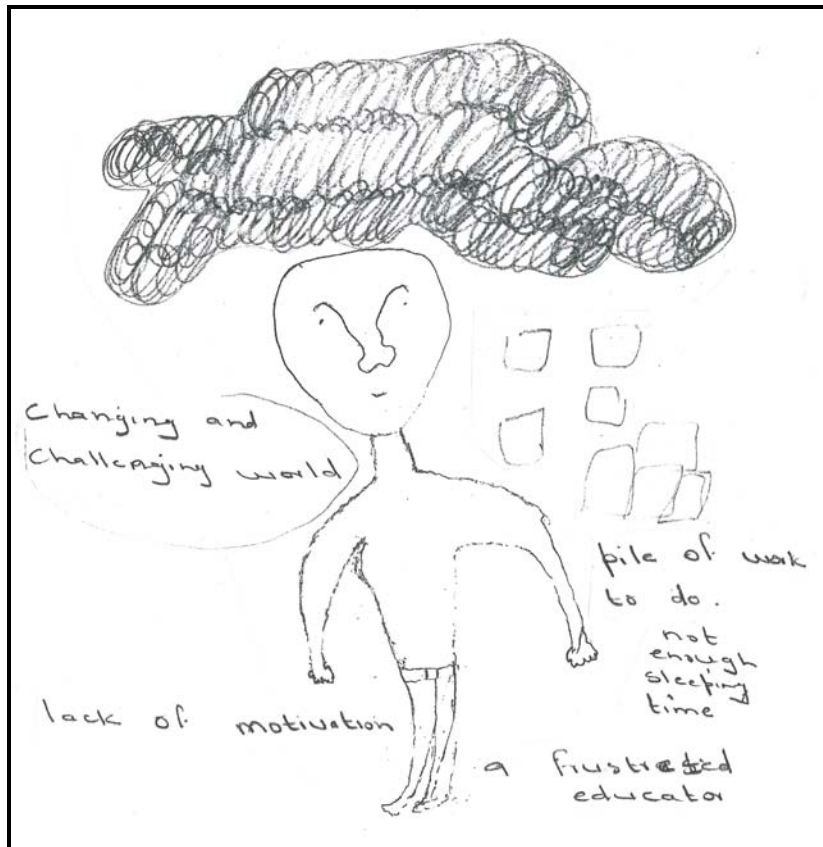 Changing and
Challenging world
pile of work
to do.
not
enough
sleeping
time
lack of motivation
a frustrated
educator